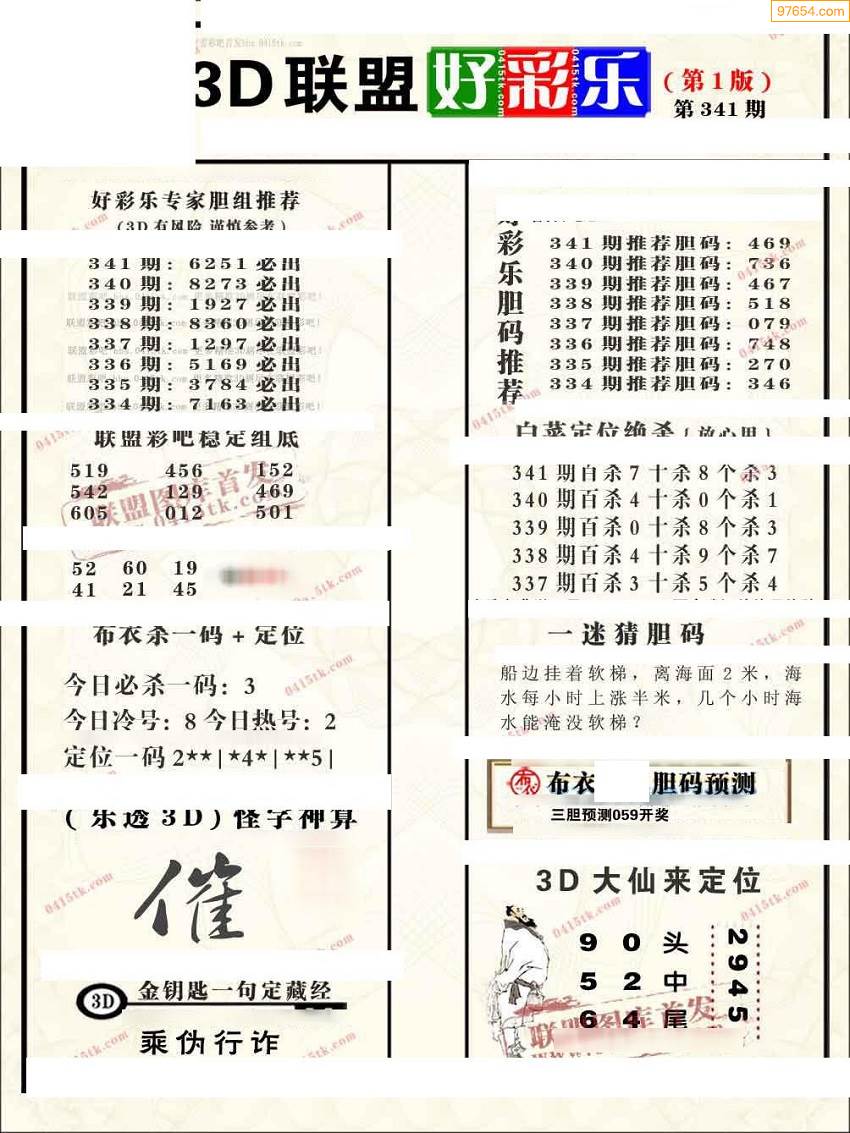 97654.com
3D联盟好彩乐(第1版)
第341期
好彩乐专家胆组推荐
(3D有风险 谨慎参考)
341期:6251必出
340期:8273必出
339期:1927必出
338期:8360必出
337期:1297必出
336期:5169必出
335期:3784必出
334期:7163必出
联盟彩吧稳定组底
519 456 152
542 129 469
605 012 501
52 60 19
41 21 45
布衣杀一码+定位
今日必杀一码:3
今日冷号:8 今日热号:2
定位一码2**|*4*|**5|
(乐透3D)怪字神算
催
3D 金钥匙一句定藏经
乘伪行诈
好彩乐胆码推荐
341期推荐胆码:469
340期推荐胆码:736
339期推荐胆码:467
338期推荐胆码:518
337期推荐胆码:079
336期推荐胆码:748
335期推荐胆码:270
334期推荐胆码:346
白菜定位绝杀{放心用}
341期百杀7十杀8个杀3
340期百杀4十杀0个杀1
339期百杀0十杀8个杀3
338期百杀4十杀9个杀7
337期百杀3十杀5个杀4
一迷猜胆码
船边挂着软梯,离海面2米,海
水每小时上涨半米,几个小时海
水能淹没软梯?
布衣 胆码预测
三胆预测059开奖
3D大仙来定位
9 0 头
5 2 中
6 4 尾
2945
联盟图库首发
0415tk.com